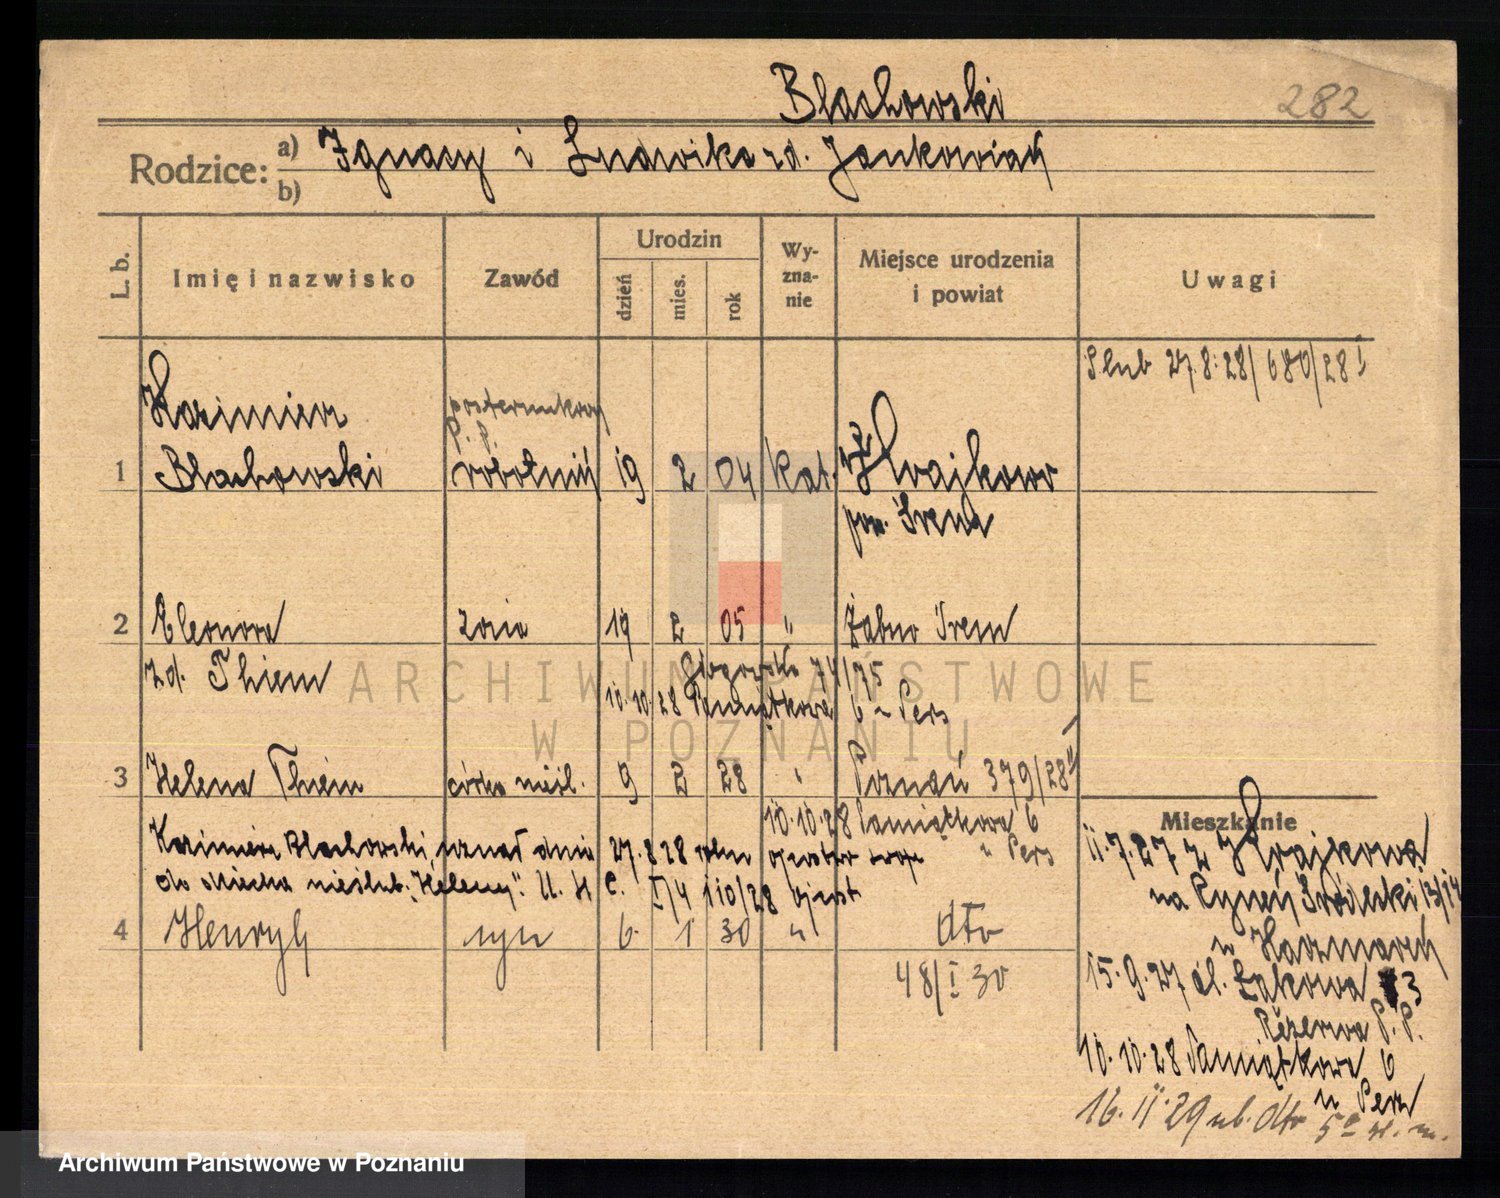 Blachowski
282
Rodzice: a) Ignacy i Ludwika zd. Jankowiak
b)
L. b. Imię i nazwisko Zawód Urodzin dzień mies. rok Wyznanie Miejsce urodzenia i powiat Uwagi
Ślub 27.8.28/680/28 I
Kazimierz posterunkowy
P. P.
1 Blachowski robotnik 19 2 04 kat. Krajkowo
pow. Śrem
2 Eleonora żona 19 2 05 " Żabno Śrem
zd. Thiem Głogowska 74/75
10.10.28 Pamiątkowa 6
3 Helena Thiem córka nieśl. 9 2 28 " Poznań 379/28 II
10.10.28 Pamiątkowa 6
Kazimierz Blachowski uznał dnia 27.8.28 ojcostwo swoje
do dziecka nieślub. "Heleny". U. S. C. I/4 110/28
4 Henryk syn 6. 1 30 " dto
48/I 30
Mieszkanie
11.7.27 z Krajkowa
na Rynek Śródecki 13/14
u Kaczmarek
15.9.27 ul. Łąkowa 3
Rezerwa P. P.
10.10.28 Pamiątkowa 6
16.11.29 dto
ARCHIWUM PAŃSTWOWE
W POZNANIU
Archiwum Państwowe w Poznaniu